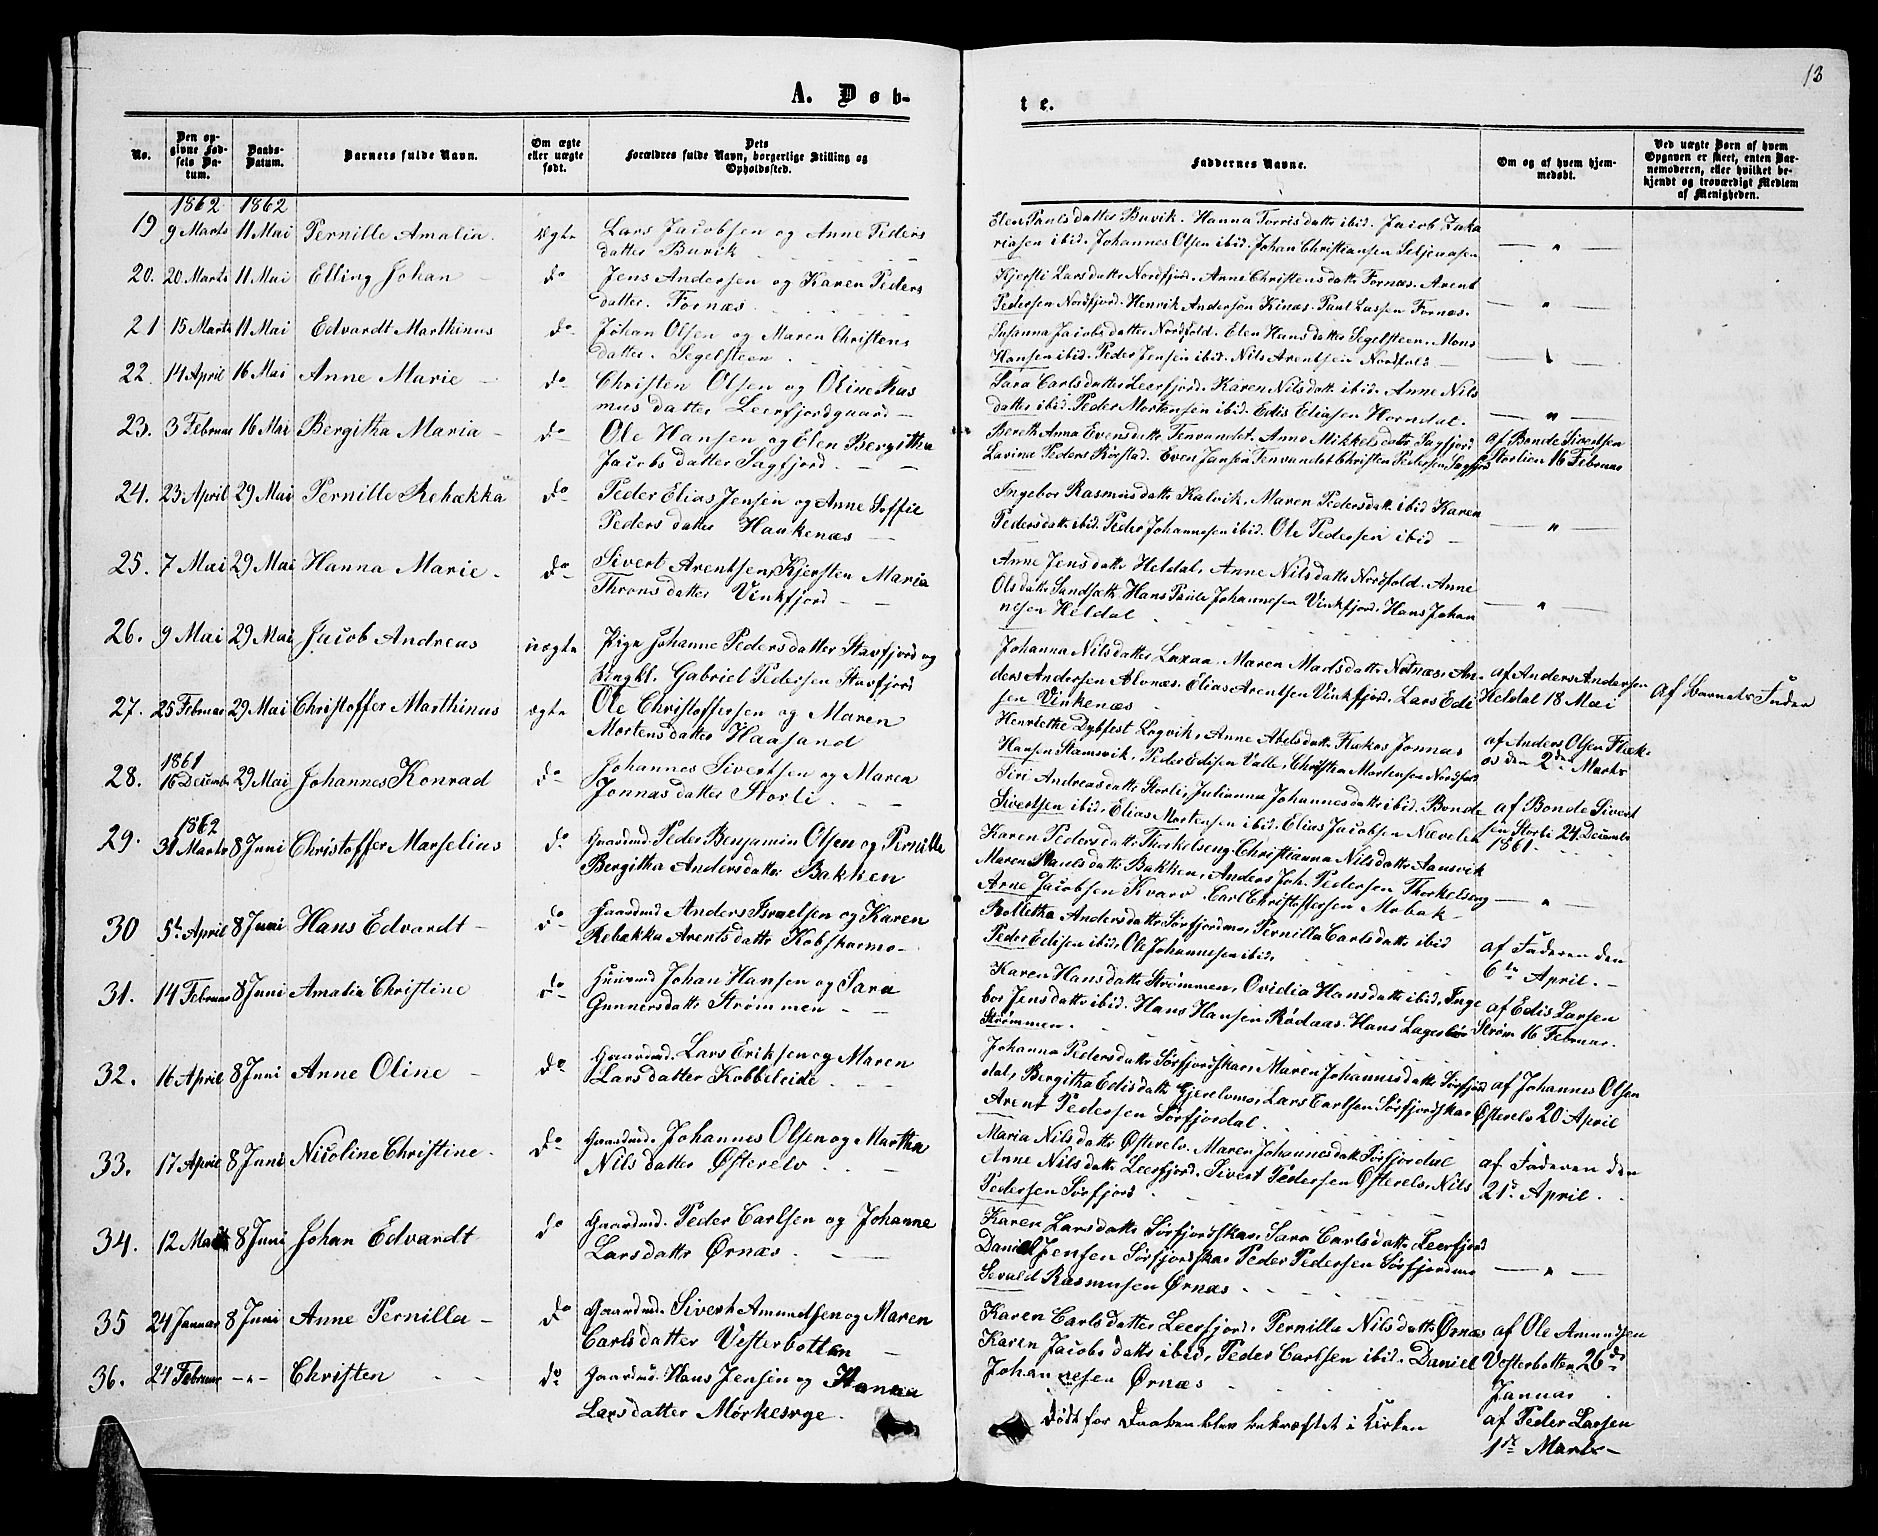 13
A. Døb-
te.
No.
Den op-
givne Fød-
sels Da-
tum.
Daabs-
Datum.
Barnets fulde Navn.
Om ægte
eller uægte
født.
Dets
Forældres fulde Navn, borgerlige Stilling og
Opholdssted.
Faddernes Navne.
Om og af hvem hjem-
medøbt.
Ved uægte Børn af hvem
Opgaven er skeet, enten Bar-
nemoderen, eller hvilket be-
kjendt og troværdigt Medlem
af Menigheden.
1862 1862
19 9 Marts 11 Mai Pernille Amalia. ægte Lars Jacobsen og Anne Peders
datter Buvik
Elen Paulsdatter Buvik. Hanna Torrisdatter ibid. Jacob Zaka
riasen ibid. Johannes Olsen ibid. Johan Christiansen — " —
20. 20 Marts 11 Mai Elling Johan — do Jens Andersen og Karen Peders
datter. Fornæs.
Kjersti Larsdatter Nordfjord. Anne Christensdatter Fornæs. Arent
Pedersen Nordfjord. Henrik Andersen Kinæs. Paul Larsen Fornæs. — " —
21 15 Marts 11 Mai Edvardt Marthinus do Johan Olsen og Maren Christens
datter. Segelsteen
Susanna Jacobsdatter Nordfold. Elen Hansdatter Segelsteen. Mons
Hansen ibid. Peder Jensen ibid. Nils Arentsen Nordfold —
22. 14 April 16 Mai Anne Marie — do Christen Olsen og Oline Ras
musdatter Leerfjordgaard —
Sara Carlsdatter Leerfjord. Karen Nilsdatt ibid. Anne Nils
datter ibid. Peder Mortensen ibid. Edis Eliasen Horndal. — " —
23. 3 Februar 16 Mai Bergitha Maria — do Ole Hansen og Elen Bergitha
Jacobsdatter Sagfjord
Bereth Anna Evensdatt Tenvandet. Anne Mikkelsdatt Sagfjord
Lavina Peders Rørstad. Even Jansen Tenvandet Christen Pedersen Sagfjord
af Bonde Sivertsen
Storlien 16 Februar
24. 23 April 29 Mai Pernille Rebækka do Peder Elias Jensen og Anne Soffie
Pedersdatter Haukenæs —
Ingebor Rasmusdatt Kalvik, Maren Pedersdatt ibid Karen
Pedersdatt ibid. Peder Johannesen ibid. Ole Pedersen ibid — — " —
25. 7 Mai 29 Mai Hanna Marie — do Sivert Arentsen, Kjersten Maria
Thronsdatter Vinkfjord —
Anne Jensdatt Heldal, Anne Nilsdatter Nordfold. Anne
Olsdatt Sandsæt. Hans Paule Johannesen Vinkfjord. Hans Johan
nesen Heldal — " —
26. 9 Mai 29 Mai Jacob Andreas uægte Pige Johanne Pedersdatter Stavfjord og
Ungkl. Gabriel Pedersen Stavfjord
Johanna Nilsdatter Laxaa. Maren Madsdatt Notnæs. An
ders Andersen Alvnæs. Elias Arentsen Vinkfjord. Lars Edi
sen Vinkenæs
af Anders Andersen
Heldal 18 Mai
af Barnets Fader
27. 25 Februar 29 Mai Christoffer Marthinus ægte Ole Christoffersen og Maren
Mortensdatter Haasand
Henriethe Dybfest Løgvik, Anne Abelsdatt Flækos Jonnas
Hansen Stamsvik, Peder Edisen Valle, Christen Mortensen Nordfold
af Anders Olsen Flæk-
os den 2den Marts
1861
28. 16 Decemb 29 Mai Johannes Konrad do Johannes Sivertsen og Maren
Jonnasdatter Storli.
Siri Andreasdatt Storli, Julianna Johannesdatt ibid. Bonde
Sivertsen ibid. Elias Mortensen ibid. Elias Jacobsen Nævelen
af Bonde Sivert
sen Storli 24 Decemb
1861
1862
29. 31 Marts 8 Juni Christoffer Marselius do Gaardmd Peder Benjamin Olsen og Pernille
Bergitha Andersdatter Bakken
Karen Pedersdatt Thorkelseng Christianna Nilsdatt Aansvik
Maren Paulsdatt Bakken, Anders Joh. Pedersen Thorkelseng
Arne Jacobsen Kvarv Carl Christoffersen Mobak — " —
30 5te April 8 Juni Hans Edvardt — do Gaardmd Anders Israelsen og Karen
Rebækka Arentsdatt Kobskarmo —
Bolletha Andersdatt Sørfjordmo, Pernilla Carlsdatt ibid
Peder Edisen ibid, Ole Johannesen ibid.
af Faderen den
6te April. —
31. 14 Februar 8 Juni Amalia Christine do Husmd Johan Hansen og Sara
Gunnersdatt Strømmen
Karen Hansdatt Strømmen, Ovidia Hansdatt ibid, Inge
bor Jensdatt ibid. Hans Hansen Rødaas. Hans Lagesen
Strømmen.
af Edis Larsen
Strøm 16 Februar.
32. 16 April 8 Juni Anne Oline — do Gaardmd. Lars Eriksen og Maren
Larsdatter Kobbeleide
Johanna Pedersdatt Sørfjordskar, Maren Johannesdatt Sørfjord
dal, Bergitha Edisdatt Gjerelvmo, Lars Carlsen Sørfjordskar
Arent Pedersen Sørfjordal
af Johannes Olsen
Østerelv 20 April
33. 17 April 8 Juni Nicoline Christine. do Gaardmd. Johannes Olsen og Martha
Nilsdatter Østerelv
Maria Nilsdatt Østerelv. Maren Johannesdatt Sørfjordal
Anne Nilsdatt Leerfjord. Sivert Pedersen Østerelv, Nils
Pedersen Sørfjord
af Faderen den
21de April
34. 12 Marts 8 Juni Johan Edvardt do Gaardmd. Peder Carlsen og Johanne
Larsdatt Ørnæs
Karen Larsdatt Sørfjordskar, Sara Carlsdatt Leerfjord
Daniel Jensen Sørfjordskar Peder Pedersen Sørfjordmo
Sevald Rasmusen Ørnæs — " —
35 24 Januar 8 Juni Anne Pernilla — do Gaardmd. Sivert Amundsen og Maren
Carlsdatter Vesterbotten
Karen Carlsdatter Leerfjord. Pernilla Nilsdatt Ørnæs
Karen Jacobsdatt ibid, Peder Carlsen ibid. Daniel
Johannesen Ørnæs
af Ole Amundsen
Vesterbotten 26de
Januar
36. 24 Februar —"— Christen do Gaardmd. Hans Jensen og Hanna
Larsdatter Mørkesvge.
Født før Daaben blev bekræftet i Kirken
af Peder Larsen
1ste Marts —